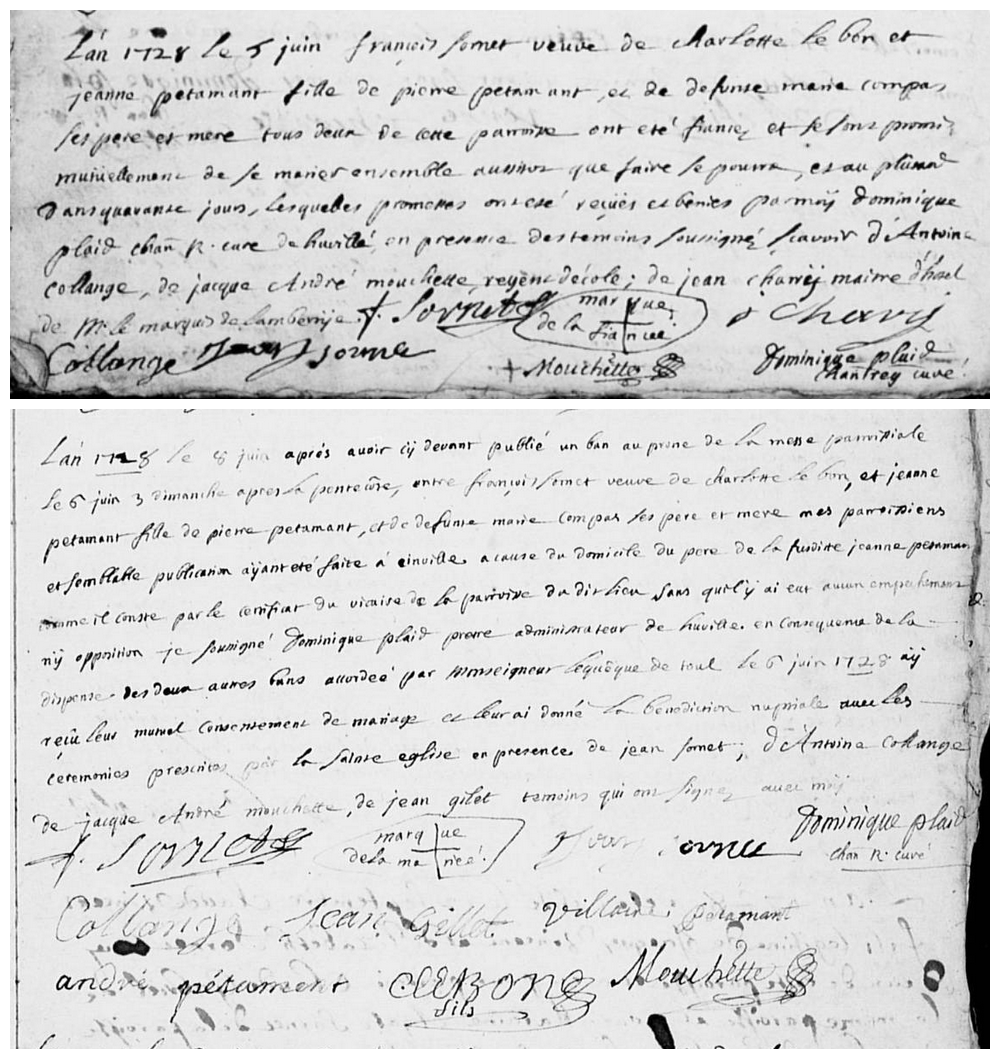 L'an 1728 le 5 juin françois somet veuve de charlotte le bon et
jeanne petamant fille de pierre petamant, et de defunte marie compas
ses pere et mere tous deux de cette parroisse ont eté fiancez et se sont promis
mutuellement de se marier ensemble aussitot que faire se pourra, et au plutard
dans quarante jours, lesquelles promesses ont eté reçües et benies par mÿ Dominique
plaid chan R. curé de huvillé, en presence des temoins soussignéz scavoir d'Antoine
collange, de jacque André mouchette, regent décole; de jean charrij maitre d'hotel
de Mr. le marquis de lambertije.
f. Sornet
marque
de la fiancée.
Charij
Collange
Jean sornet
Mouchette
Dominique plaid
chan reg curé
L'an 1728 le 8 juin aprés avoir cÿ devant publié un ban au prone de la messe parroissiale
le 6 juin 3 dimanche apres la pentecôte, entre françois somet veuve de charlotte le bon, et jeanne
petamant fille de pierre petamant, et de defunte marie compas ses pere et mere mes parroissiens
et semblable publication aÿant eté faite à einville a cause du domicile du pere de la susditte jeanne petamant
comme il conste par le certificat du vicaire de la paroisse du dit lieu sans qu'il ÿ ai eut aucun empechement
nÿ opposition je soussigné Dominique plaid pretre administrateur de huville. en consequence de la
dispense des deux autres bans accordée par Monseigneur lequêque de toul le 6 juin 1728 aÿ
reçu leur mutuel consentement de mariage et leur ai donné la benediction nuptiale avec les
ceremonies prescrites par la sainte eglise en presence de jean somet, d'Antoine Collange
de jacque André mouchette, de jean gilet temoins qui ont signez avec mÿ
f. Sornet
marque
de la mariée.
Jean sornet
Dominique plaid
chan R. curé
Collange
Jean Gillot
Villaine
petamant
andré pétament
CLEBONE
fils
Mouchette